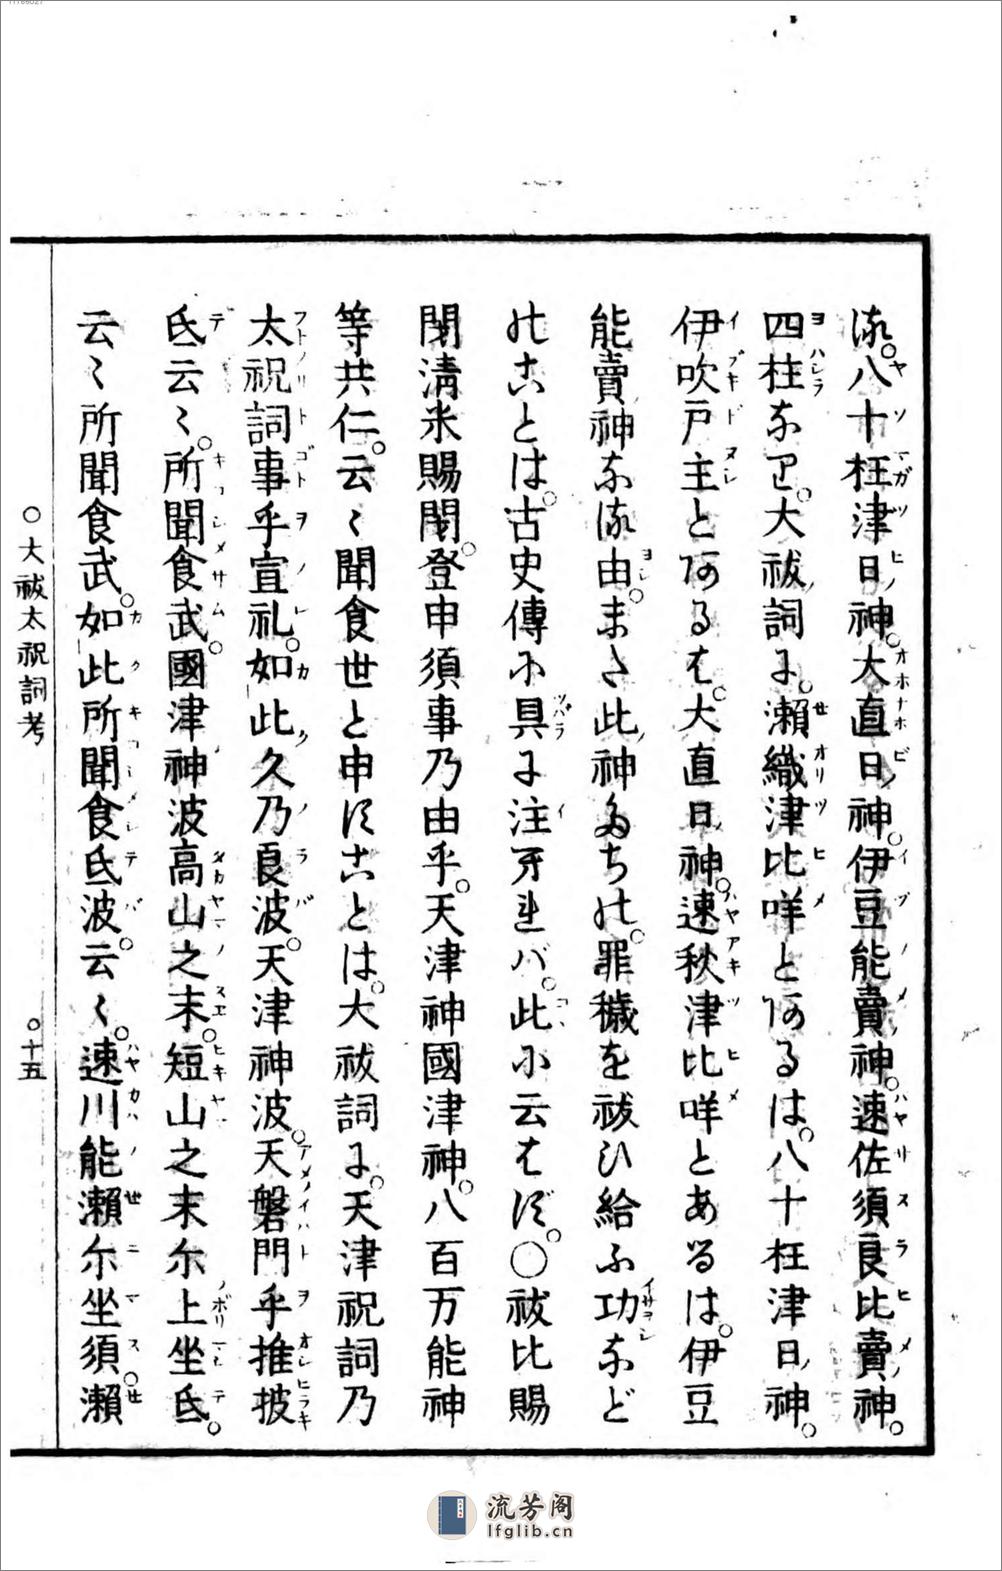 流。八十枉津日神。大直日神。伊豆能賣神。速佐須良比賣神。
四柱なり。大祓詞に。瀬織津比咩とあるは。八十枉津日神。
伊吹戸主とあるは。大直日神。速秋津比咩とあるは。伊豆
能賣神なる由。また此神たちの。罪穢を祓ひ給ふ功など
のことは。古史傳に具に注されば。此に云はず。○祓比賜
閇清米賜閇。登申須事乃由乎。天津神國津神。八百万能神
等共仁。云〻聞食世と申すことは。大祓詞に。天津祝詞乃
太祝詞事乎宣礼。如此久乃良波。天津神波。天磐門乎推披
氐云〻。所聞食武。國津神波高山之末。短山之末尓上坐氐。
云〻所聞食武。如此所聞食氐波。云〻。速川能瀬尓坐須。瀬
○大祓太祝詞考
○十五
流芳阁
lfglib.cn